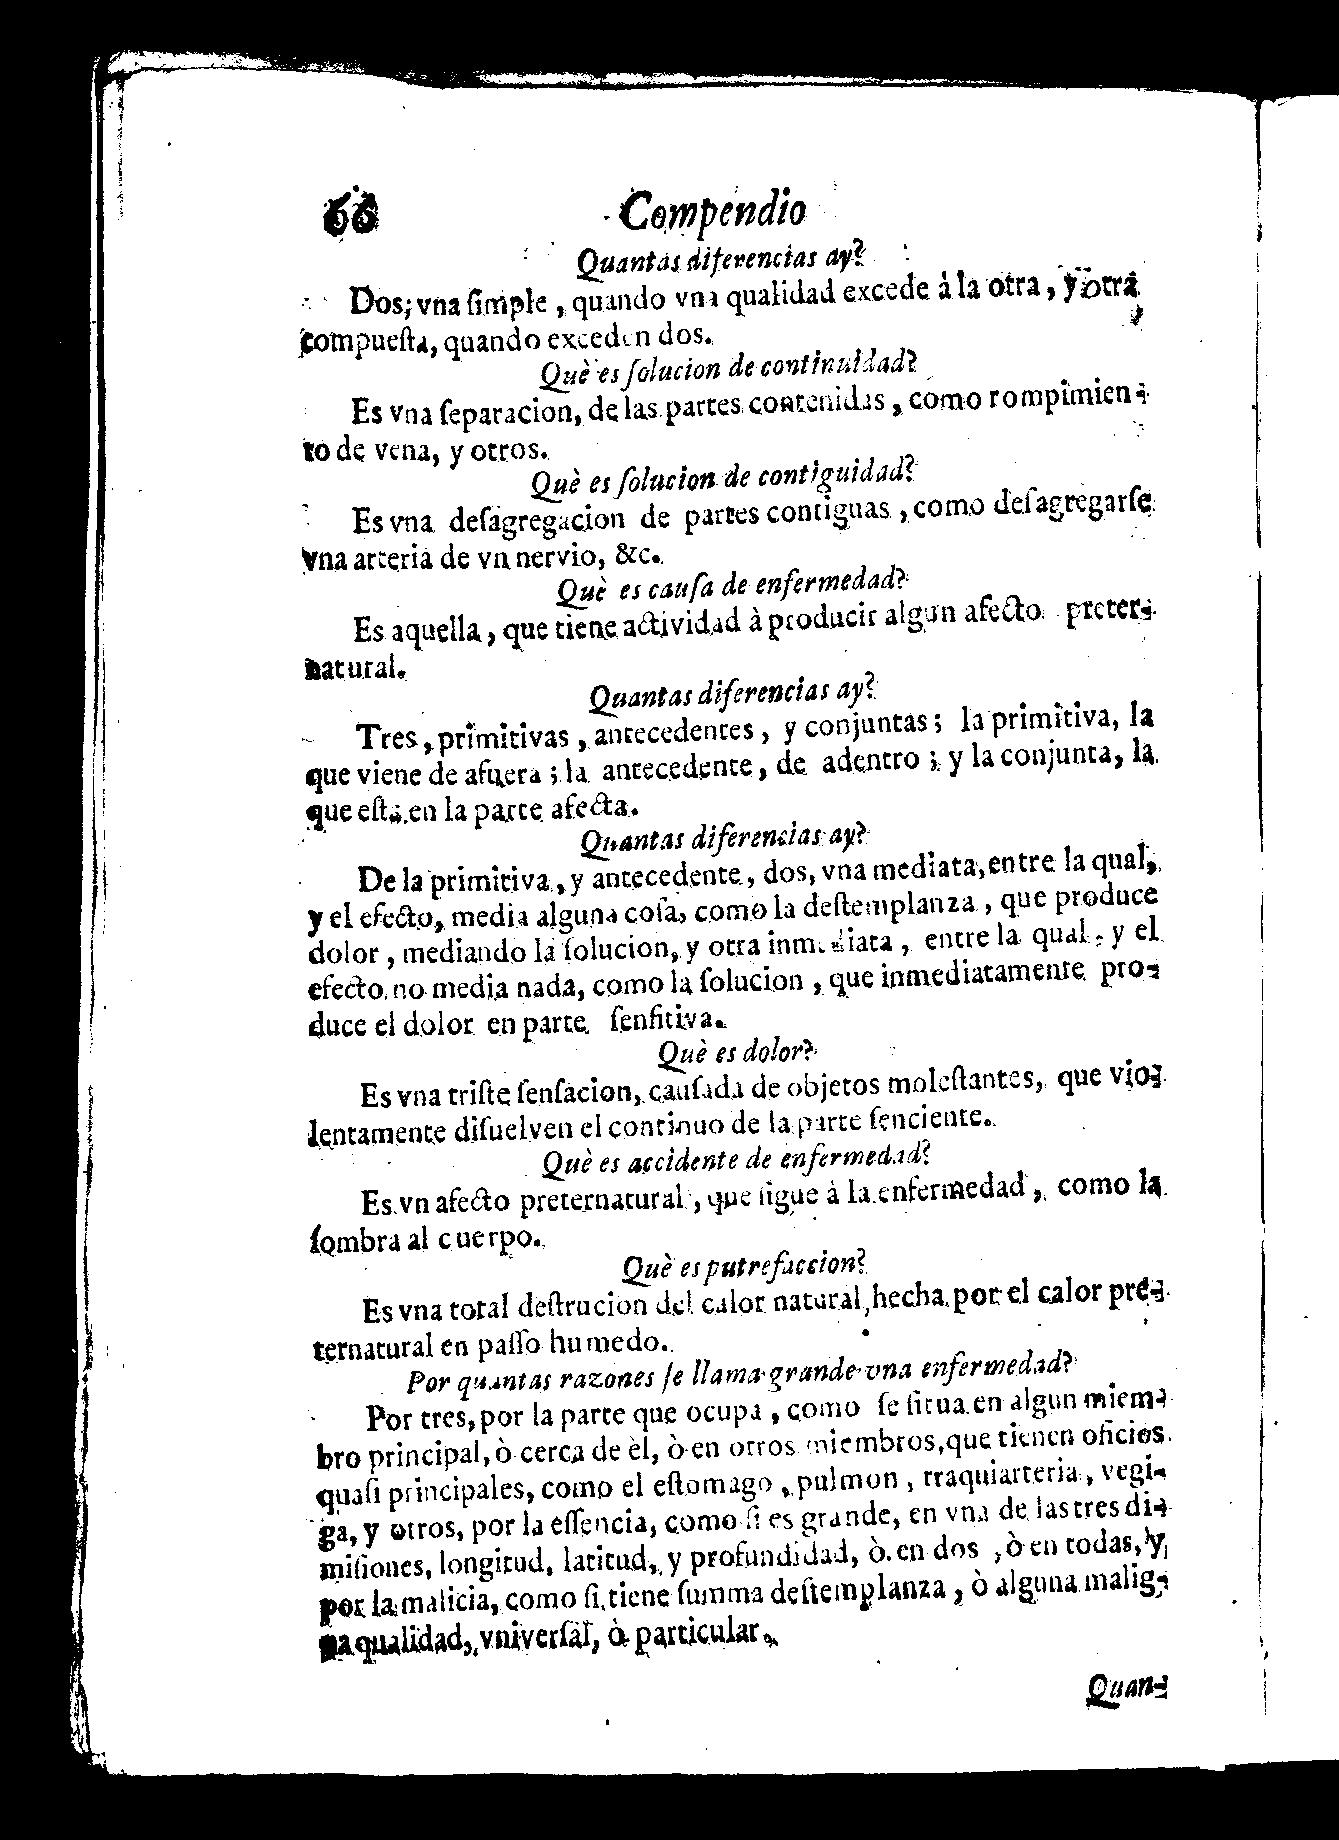 66 Compendio
Quantas diferencias ay?
Dos; vna ſimple, quando vna qualidad excede à la otra, y otra
compueſta, quando exceden dos.
Què es ſolucion de continuidad?
Es vna ſeparacion, de las partes contenidas, como rompimien-
to de vena, y otros.
Què es ſolucion de contiguidad?
Es vna deſagregacion de partes contiguas, como deſagregarſe
vna arteria de vn nervio, &c.
Què es cauſa de enfermedad?
Es aquella, que tiene actividad à producir algun afecto preter-
natural.
Quantas diferencias ay?
Tres, primitivas, antecedentes, y conjuntas; la primitiva, la
que viene de afuera; la antecedente, de adentro; y la conjunta, la
que eſtà en la parte afecta.
Quantas diferencias ay?
De la primitiva, y antecedente, dos, vna mediata, entre la qual,
y el efecto, media alguna coſa, como la deſtemplanza, que produce
dolor, mediando la ſolucion, y otra inmediata, entre la qual, y el
efecto no media nada, como la ſolucion, que inmediatamente pro-
duce el dolor en parte ſenſitiva.
Què es dolor?
Es vna triſte ſenſacion, cauſada de objetos moleſtantes, que vio-
lentamente diſuelven el continuo de la parte ſenciente.
Què es accidente de enfermedad?
Es vn afecto preternatural, que ſigue à la enfermedad, como la
ſombra al cuerpo.
Què es putrefaccion?
Es vna total deſtrucion del calor natural, hecha por el calor pre-
ternatural en paſſo humedo.
Por quantas razones ſe llama grande vna enfermedad?
Por tres, por la parte que ocupa, como ſe ſitua en algun miem-
bro principal, ò cerca de èl, ò en otros miembros, que tienen oficios
quaſi principales, como el eſtomago, pulmon, traquiarteria, vegi-
ga, y otros, por la eſſencia, como ſi es grande, en vna de las tres di-
miſiones, longitud, latitud, y profundidad, ò en dos, ò en todas, y
por la malicia, como ſi tiene ſumma deſtemplanza, ò alguna malig-
na qualidad, vniverſal, ò particular.
Quan-